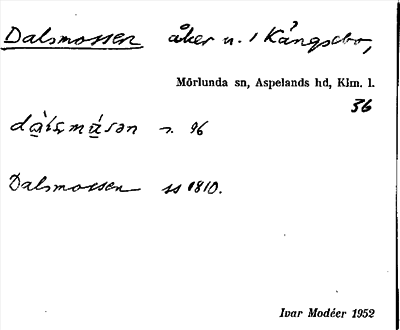 Dalsmossen åker n. 1 Kångsebo,
Mörlunda sn, Aspelands hd, Klm. l.
36
n. 96
Dalsmossen ss 1810.
Ivar Modéer 1952